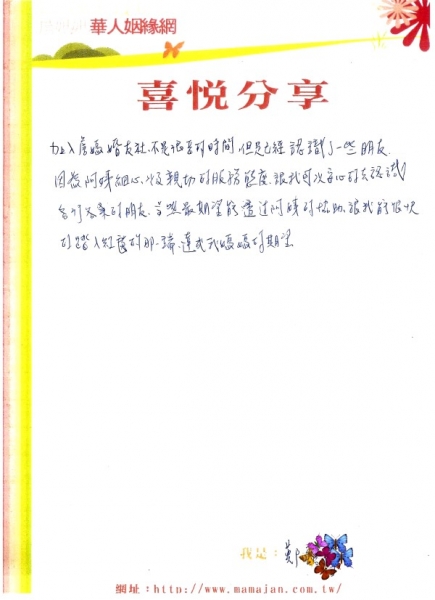 華人姻緣網
喜悅分享
加入詹媽婚友社，不是很長的時間，但是已經認識了一些朋友。
因為阿姨細心以及親切的服務態度，讓我可以安心的去認識
各行各業的朋友，當然最期望能透過阿姨的協助，讓我能很快
的踏入紅毯的那一端，達成我媽媽的期望。
我是：
網址：http://www.mamajan.com.tw/